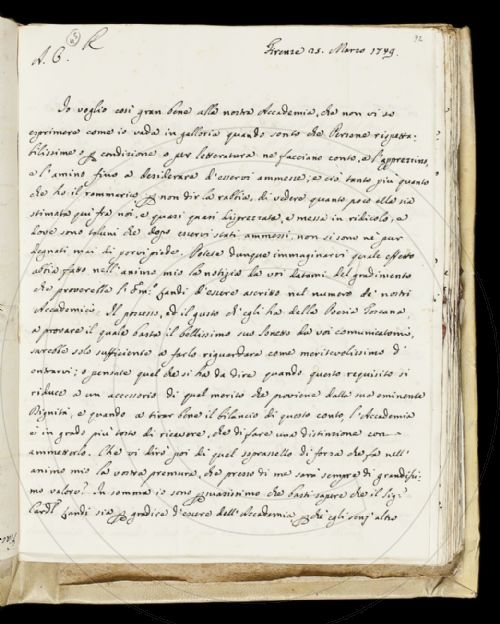 A. C. R
92
Firenze 25. Marzo 1749.
Io voglio così gran bene alla nostra Accademia, che non vi so
esprimere come io vada in galloria quando sento che Persone rispetta-
bilissime o per condizione o per letteratura ne facciano conto, e l'apprezzino,
e l'amino fino a desiderare d'esservi ammesse; e ciò tanto più quanto
che ho il rammarico, per non dir la rabbia, di vedere quanto poco ella sia
stimata qui fra noi, e quasi quasi disprezzata, e messa in ridicolo, e
dove sono taluni che dopo esservi stati ammessi, non si sono nè pur
degnati mai di porvi piede. Potete dunque immaginarvi quale effetto
abbia fatto nell'animo mio la notizia da voi datami del gradimento
che proverebbe l'Em: Landi d'essere ascritto nel numero de' nostri
Accademici. Il possesso, ed il gusto ch'egli ha della Poesia Toscana,
a provare il quale basta il bellissimo suo Sonetto da voi comunicatomi,
sarebbe solo sufficiente a farlo riguardare come meritevolissimo d'
entrarvi; e pensate quel che si ha da dire quando questo requisito si
riduce a un accessorio di quel merito che proviene dalla sua eminente
Dignità, e quando a tirar bene il bilancio di questo conto, l'Accademia
è in grado più tosto di ricevere, che di fare una distinzione con
ammetterlo. Che vi dirò poi di quel soprasello di forza che fa nell'
animo mio la vostra premura, che presso di me sarà sempre di grandissi-
mo valore? In somma io sono persuasissimo che basti sapere che il Sig.
Cardl Landi sia per gradire d'essere dell'Accademia, perchè egli senz'altro